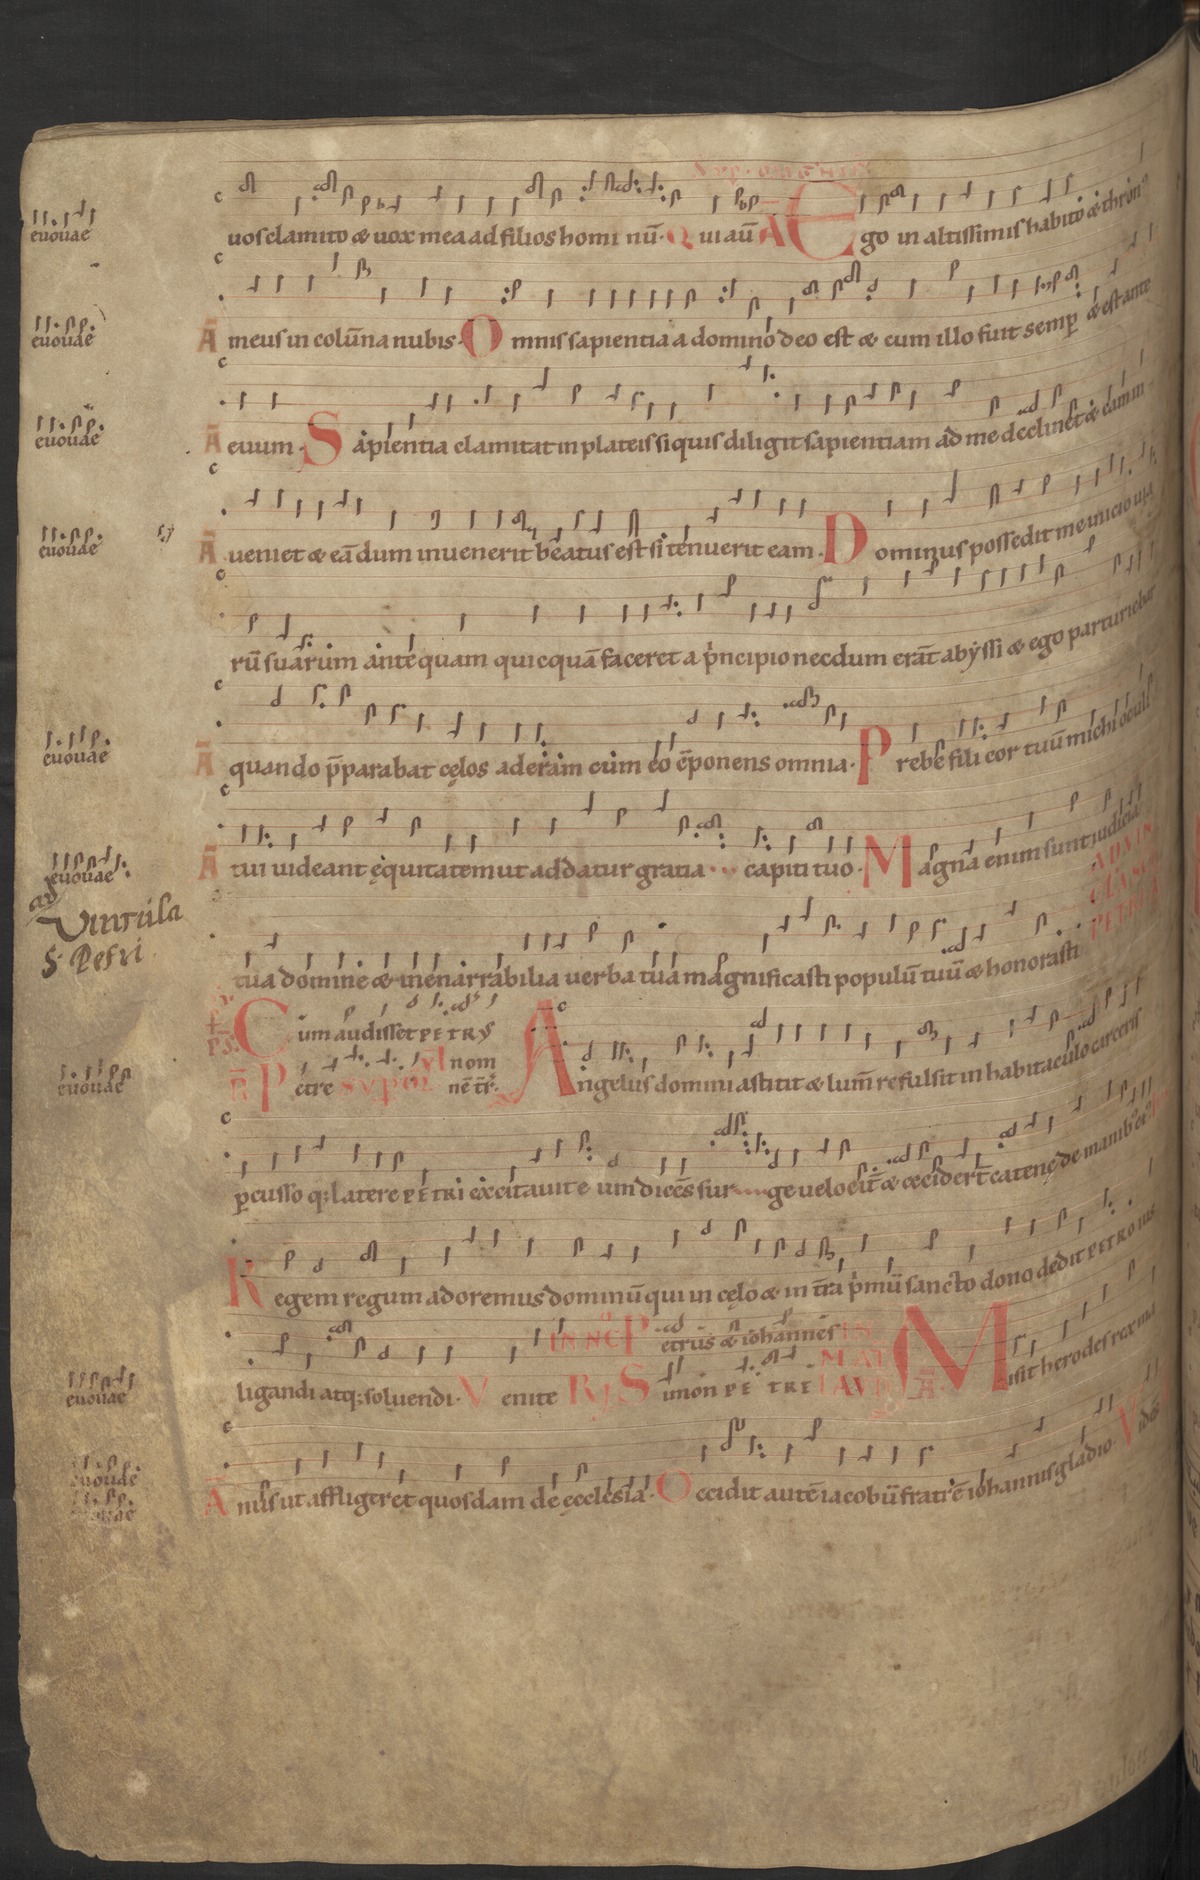 euouae uos clamito & uox mea ad filios homi nū. Qui aū A Ego in altissimis habito & thron9
euouae Ā meus in colūna nubis. Omnis sapientia a domino deo est & cum illo fuit semp & est ante
euouae Ā euum. Sapientia clamitat in plateis siquis diligit sapientiam ad me declinet & eam in
euouae Ā ueniet & eā dum inuenerit beatus est si tenuerit eam. Dominus possedit me inicio uia
rū suarum antequam quicquā faceret a pncipio necdum erāt abyssi & ego parturiebar
euouae Ā quando p̄parabat cęlos aderam cum eo cōponens omnia. Prebe fili cor tuū michi & oculi
euouae Ā tui uideant ęquitatem ut addatur gratia capiti tuo. Magna enim sunt iudicia
ad Vincula S. Petri
AD VIN CLA SCI PETRI
tua domine & inenarrabilia uerba tua magnificasti populū tuū & honorasti
Cum audisset PETRVS
euouae R Petre SVP nom nē tr̄s. Angelus domini astitit & lum̄ refulsit in habitaculo carceris
pcusso q; latere PETRI excitauit eum dicēs surge uelociť & ceciderť catenę de manib9 ei9
Regem regum adoremus dominū qui in cęlo & in tr̄a pmū sancto dono dedit PETRO ius
IN NC Petrus & iohannes IN
euouae ligandi atq; soluendi. Venite R Simon PETRE MAT LAVD A Misit herodes rex ma
euouae Ā nus ut affligeret quosdam de ecclesia. Occidit autē iacobū fratrē iohannis gladio. Vides
euouae